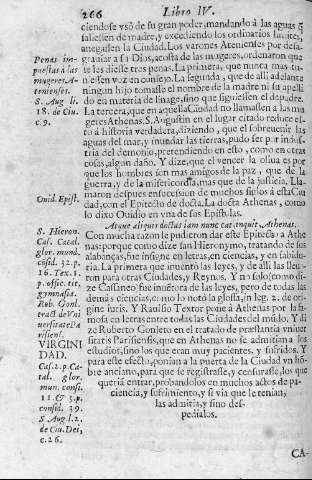 266 Libro IV.
ciendose vsò de su gran poder, mandando à las aguas q̃
saliessen de madre, y excediendo los ordinarios limites,
anegassen la Ciudad. Los varones Atenienses por desa-
grauiar a su Dios, acosta de las mugeres, ordenaron que
se les diesse tres penas. La primera, que nunca mas tu-
uiessen voz en consejo. La segunda, que de alli adelante
ningun hijo tomasse el nombre de la madre ni su apelli
do en materia de linage, sino que siguiessen el de padre.
La tercera, que en aquella Ciudad no llamassen a las mu
geres Athenas. S. Augustin en el lugar citado reduce es-
to à historia verdadera, diziendo, que el sobreuenir las
aguas del mar, y inundar las tierras, pudo ser por indus-
tria del demonio, pretendiendo en esto, como en otras
cosas, algun daño. Y dize, que el vencer la oliua es por
que los hombres son mas amigos de la paz, que de la
guerra, y de la misericordia, mas que de la justicia. Lla-
maron despues en fuccesion de muchos siglos à esta Ciu
dad, con el Epitecto de docta. La docta Athenas, como
lo dixo Ouidio en vna de sus Epistolas.
Atque aliquis doctas iam nunc eat, inquit, Athenas.
Con mucha razon le pudieron dar este Epitecto à Athe
nas: porque como dize san Hieronymo, tratando de sus
alabanças, fue insigne en letras, en ciencias, y en sabidu-
ria. La primera que inuentò las leyes, y de alli las lleua-
ron para otras Ciudades, y Reynos. Y no solo (como di-
ze Cassaneo) fue inuẽtora de las leyes, pero de todas las
demàs ciencias, como lo notò la glossa, in leg. 2. de ori-
gine iuris. Y Rauisio Textor pone à Athenas por la fa-
mosa en letras entre todas las Ciudades del mũdo. Y di
ze Roberto Gonleto en el tratado de præstantia vniuer
sitatis Parisiensis, que en Athenas no se admitian a los
estudios, sino los que eran muy pacientes, y sufridos. Y
para este efecto, ponian a la puerta de la Ciudad vn hõ-
bre anciano, para que se registrasse, y censurasse, los que
querià entrar, probandolos en muchos actos de pa-
ciencia, y sufrimiento, y si via que le tenian,
las admitia, y sino des-
pedialos.
CA-
Penas im-
puestas à las
mugeres A-
tenienses.
S. Aug li.
18. de Ciu.
c. 9.
Ouid. Epist.
S. Hieron.
Cas. Catal.
glor. mund.
cõsid. 32. p.
16. Tex. 1.
p. offic. tit.
gymnasia.
Rob. Gonl.
tract de Vni
uersitate Pa
risiensi.
VIRGINI
DAD.
Cas. 2. p. Ca-
tal. glor.
mun. const.
11. & 3. p.
consid. 39.
S Aug. l. 2.
de Ciu. Dei,
c. 26.